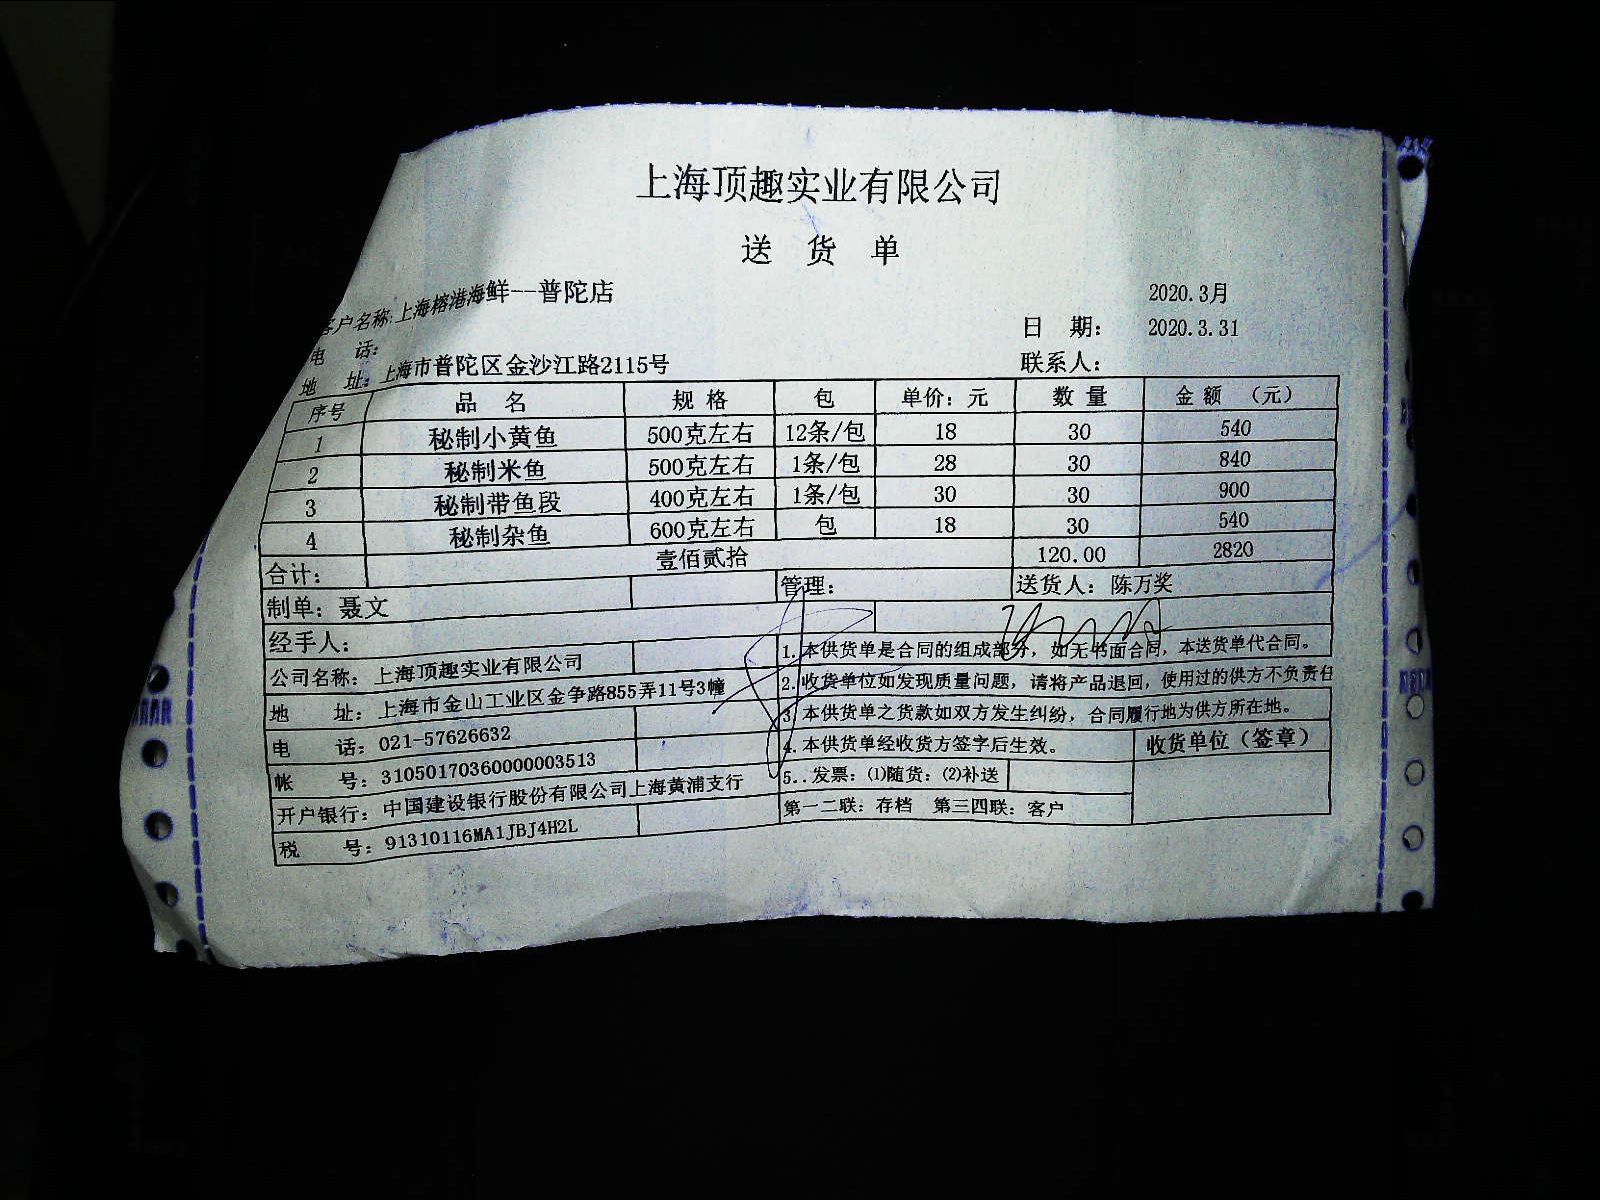 上海顶趣实业有限公司
送 货 单
客户名称:上海榕港海鲜--普陀店 2020.3月
电 话: 日 期: 2020.3.31
地 址: 上海市普陀区金沙江路2115号 联系人:
序号 品 名 规 格 包 单价: 元 数 量 金 额 (元)
1 秘制小黄鱼 500克左右 12条/包 18 30 540
2 秘制米鱼 500克左右 1条/包 28 30 840
3 秘制带鱼段 400克左右 1条/包 30 30 900
4 秘制杂鱼 600克左右 包 18 30 540
合计: 壹佰贰拾 120.00 2820
制单: 聂文 管理: 送货人: 陈万奖
经手人:
公司名称: 上海顶趣实业有限公司
地 址: 上海市金山工业区金争路855弄11号3幢
电 话: 021-57626632
帐 号: 31050170360000003513
开户银行: 中国建设银行股份有限公司上海黄浦支行
税 号: 91310116MA1JBJ4H2L
1. 本供货单是合同的组成部分, 如无书面合同, 本送货单代合同。
2. 收货单位如发现质量问题, 请将产品退回, 使用过的供方不负责任
3. 本供货单之货款如双方发生纠纷, 合同履行地为供方所在地。
4. 本供货单经收货方签字后生效。 收货单位(签章)
5..发票: (1)随货: (2)补送
第一二联: 存档 第三四联: 客户